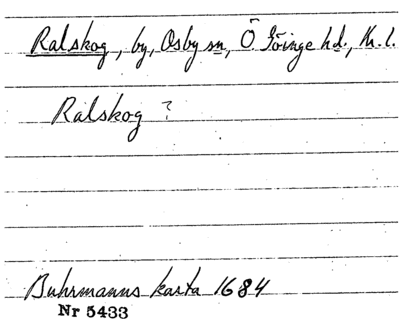 Ralskog, by, Osby sn, Ö. Göinge hd., Kr. l.
Ralskog ?
Buhrmanns karta 1684
Nr 5433